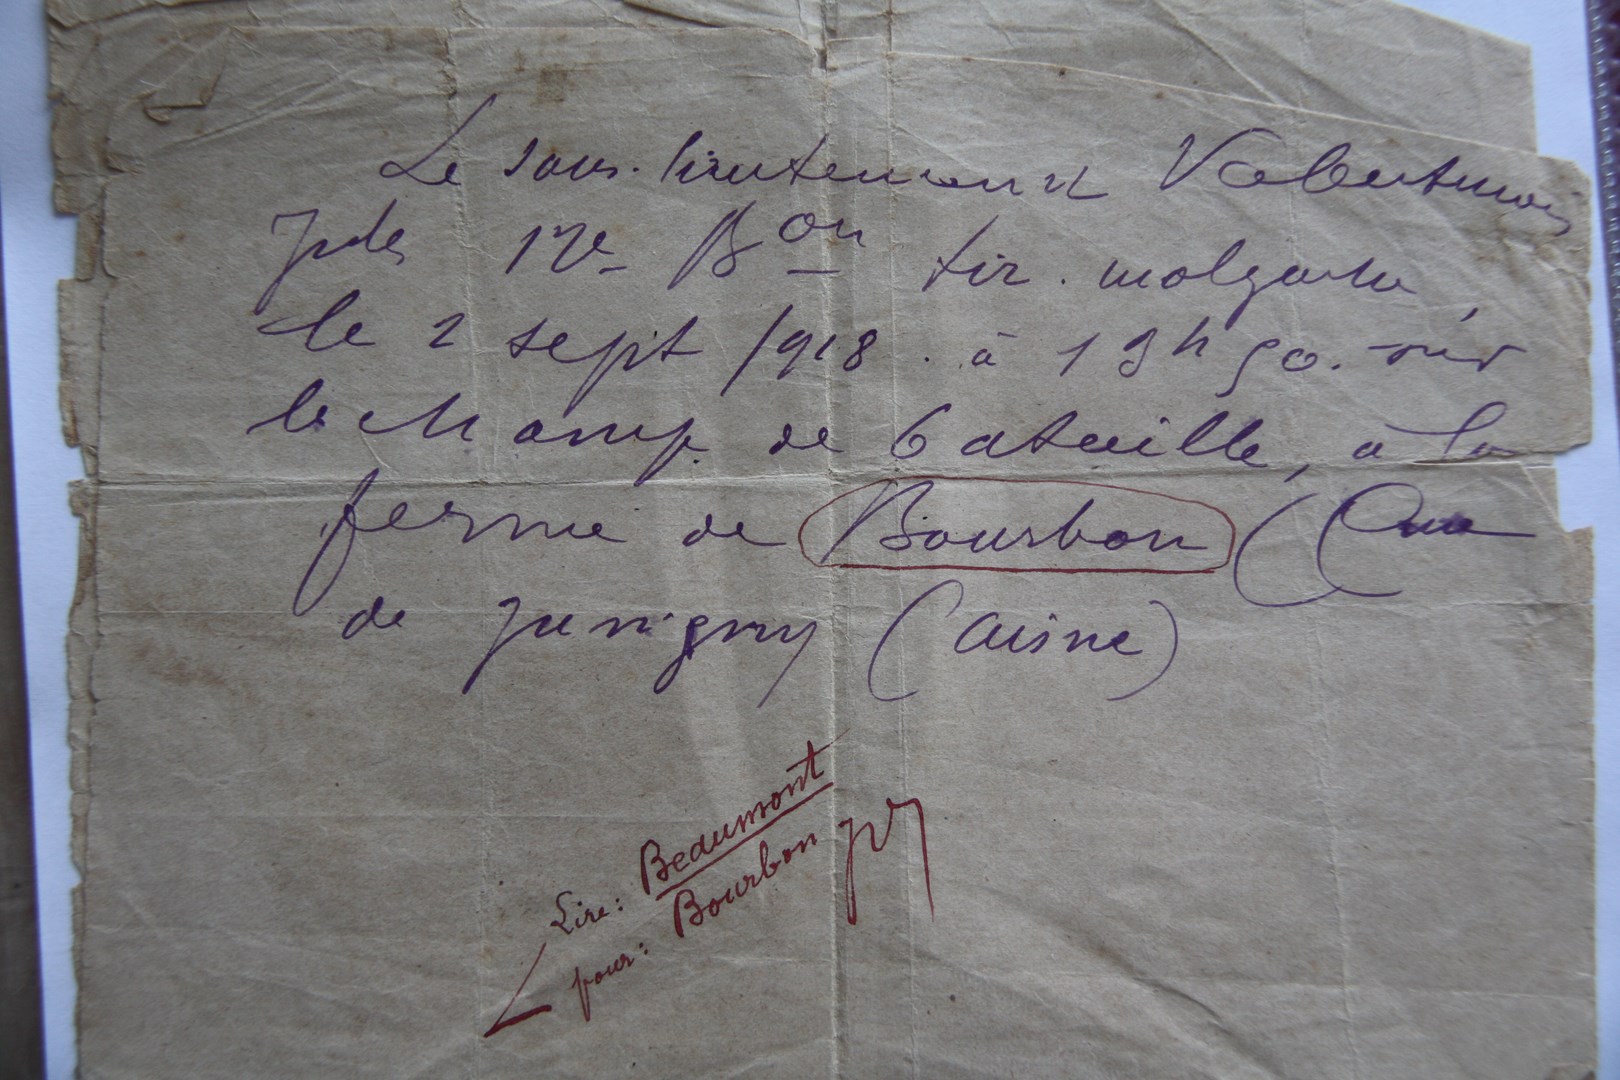 Le sous-lieutenant
12e Bon tir. malgache,
le 2 sept 1918. à 19h50. sur
le champ de bataille, à la
ferme de Bourbon (Cne
de Juvigny (Aisne)
Lire: Beaumont
pour: Bourbon